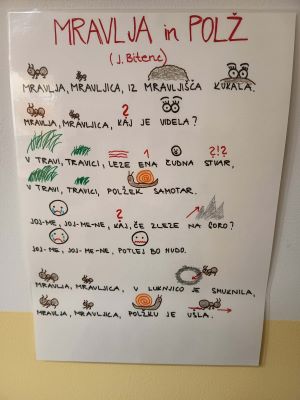 MRAVLJA in POLŽ
(J. Bitenc)
MRAVLJA, MRAVLJICA, IZ MRAVLJIŠČA KUKALA.
?
MRAVLJA, MRAVLJICA, KAJ JE VIDELA?
1 ?!?
V TRAVI, TRAVICI, LEZE ENA ČUDNA STVAR,
V TRAVI, TRAVICI, POLŽEK SAMOTAR.
?
JOJ-ME, JOJ-ME-NE, KAJ, ČE ZLEZE NA GORO?
JOJ-ME, JOJ-ME-NE, POTLEJ BO HUDO.
MRAVLJA, MRAVLJICA, V LUKNJICO JE SMUKNILA,
MRAVLJA, MRAVLJICA, POLŽKU JE UŠLA.